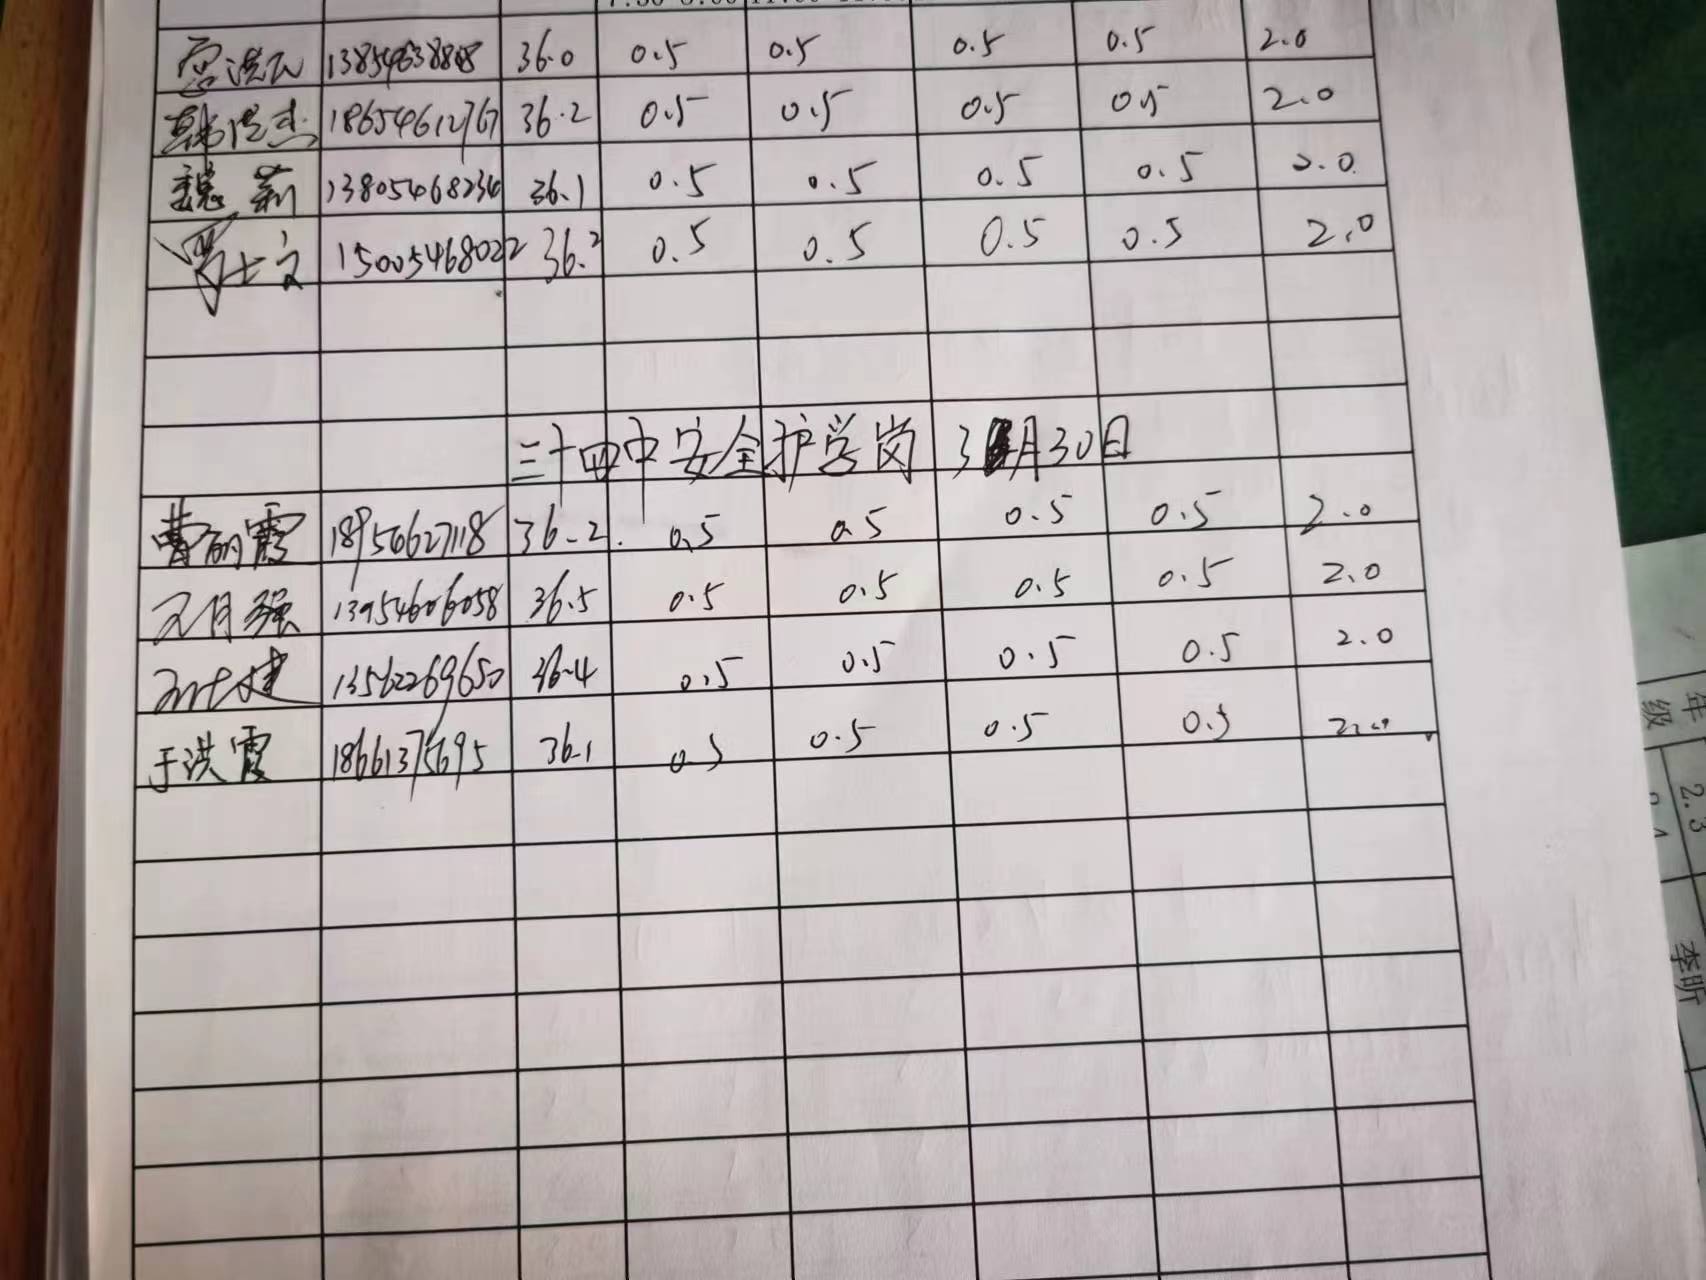 36.0 0.5 0.5 0.5 0.5 2.0
韩洪杰 18654612767 36.2 0.5 0.5 0.5 0.5 2.0
魏莉 13805468234 36.1 0.5 0.5 0.5 0.5 2.0
15005468022 36.2 0.5 0.5 0.5 0.5 2.0
三十四中安全护学岗 3月30日
曹丽霞 18956627118 36.2 0.5 0.5 0.5 0.5 2.0
13954606058 36.5 0.5 0.5 0.5 0.5 2.0
13562269650 36.4 0.5 0.5 0.5 0.5 2.0
于洪霞 18661375695 36.1 0.5 0.5 0.5 0.5 2.0
年级
2.3
李昕